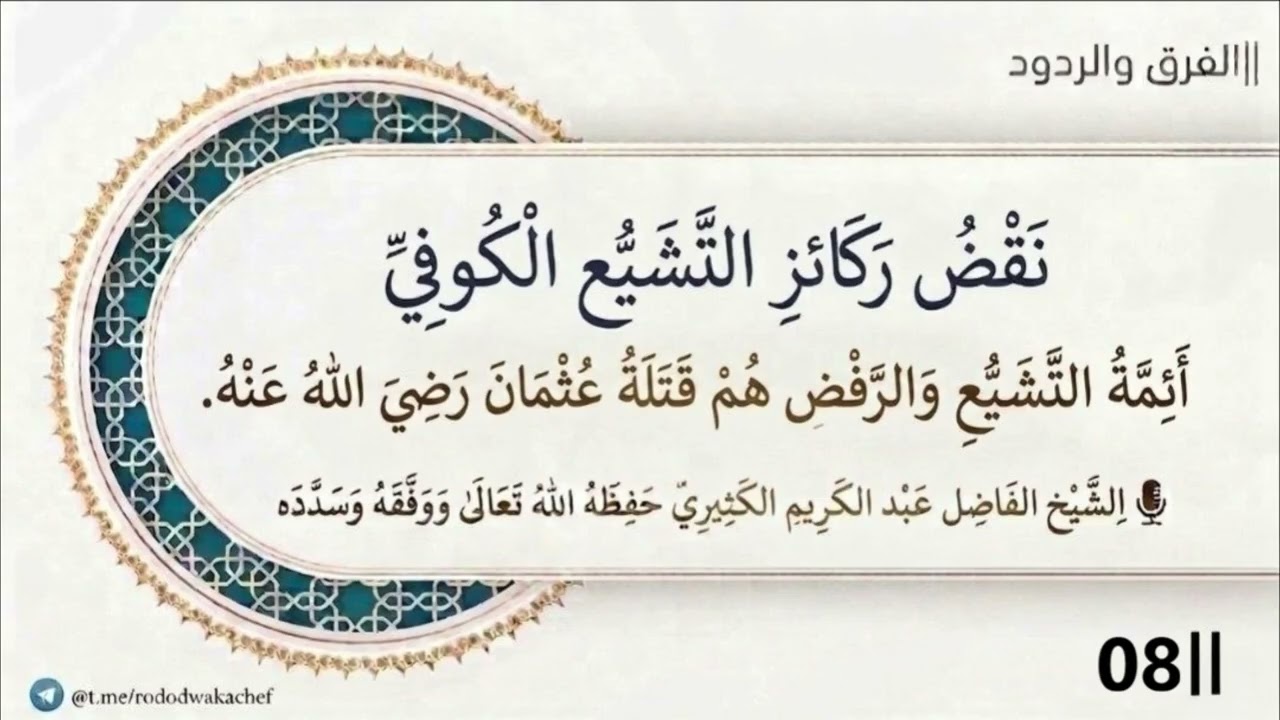 ||الفرق والردود
نَقْضُ رَكَائزِ التَّشَيُّع الْكُوفِيِّ
أَئِمَّةُ التَّشَيُّعِ وَالرَّفْضِ هُمْ قَتَلَةُ عُثْمَانَ رَضِيَ اللهُ عَنْهُ.
اِلشَّيْخ الفَاضِل عَبْد الكَرِيمِ الكَثِيرِيّ حَفِظَهُ اللهُ تَعَالَىٰ وَوَفَّقَهُ وَسَدَّدَه
08||
@t.me/rododwakachef